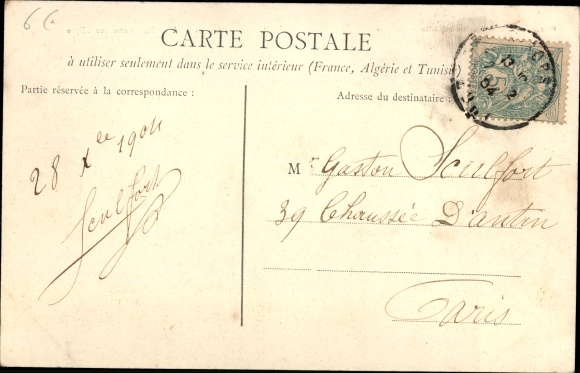 CARTE POSTALE
à utiliser seulement dans le service intérieur (France, Algérie et Tunisie)
Partie réservée à la correspondance :
Adresse du destinataire :
28 Xbre 1904
Sculfort
Mr Gaston Sculfort
39 Chaussée D'antin
Paris